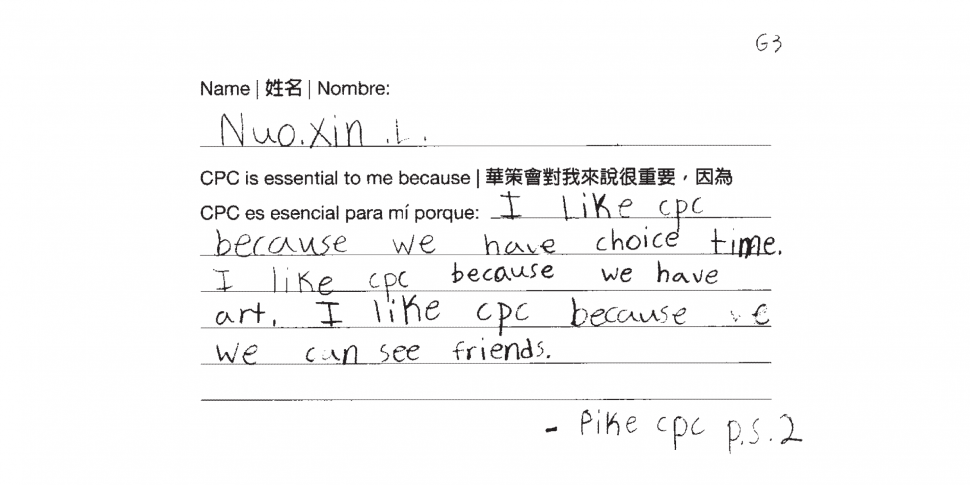 G3
Name | 姓名 | Nombre:
Nuo.Xin .L.
CPC is essential to me because | 華策會對我來說很重要，因為
CPC es esencial para mí porque: I Like cpc
because we have choice time.
I like cpc because we have
art. I like cpc because we
we can see friends.
- Pike cpc p.s.2